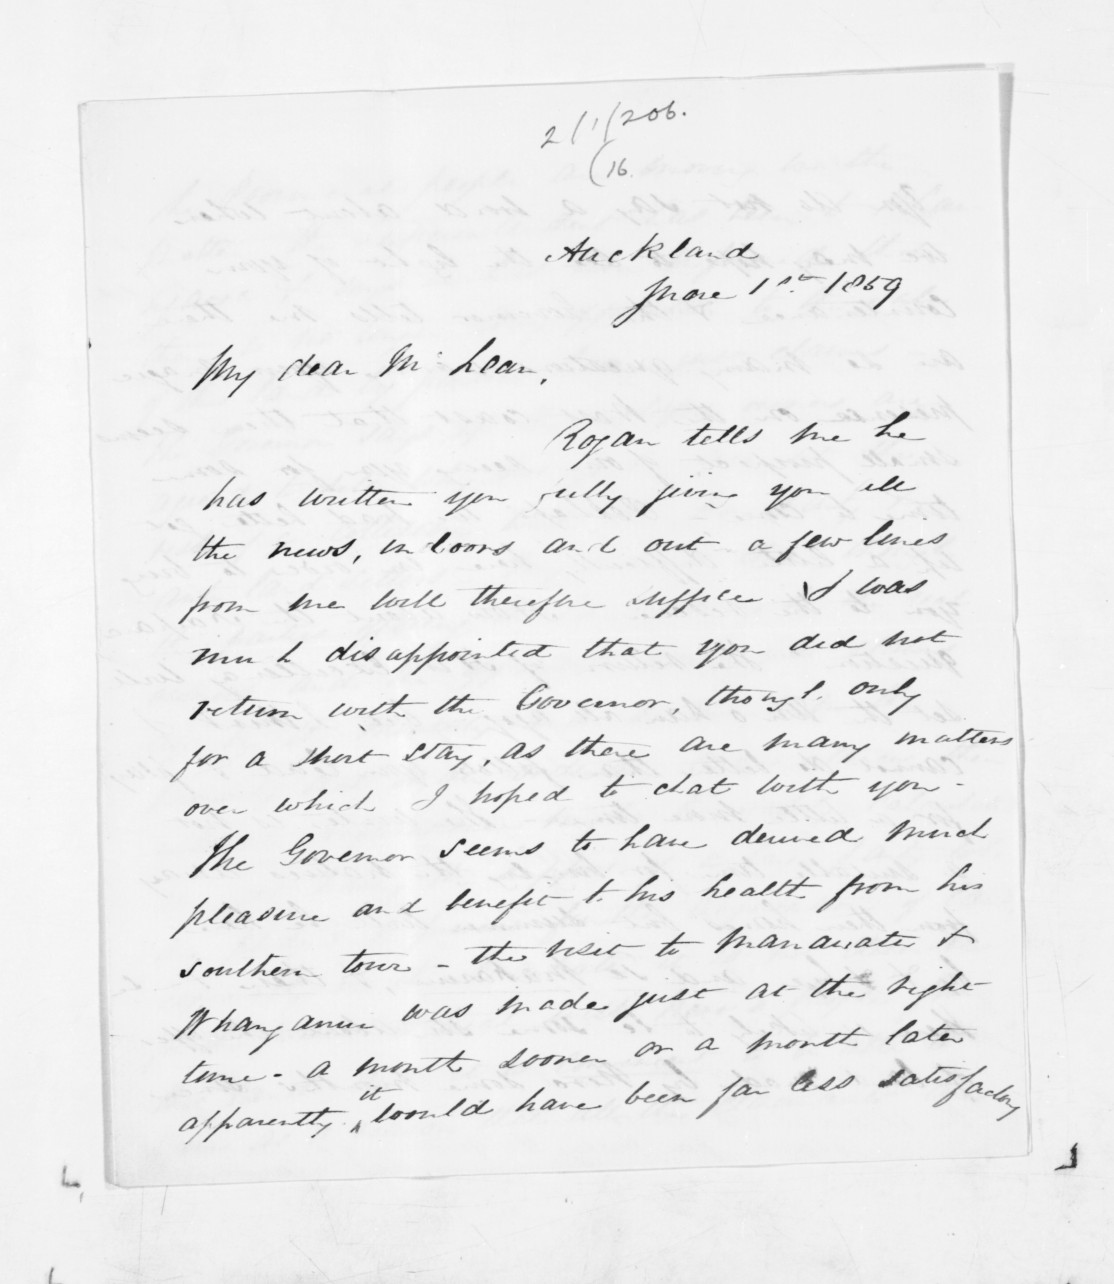 2/1/206.
(16.
Auckland
June 1st. 1859
My dear Mc Lean,
Rogan tells me he
has written you fully giving you all
the news, indoors and out a few lines
from me will therefore suffice I was
much disappointed that you did not
return with the Governor, though only
for a short stay, as there are many matters
over which I hoped to chat with you -
The Governor seems to have derived much
pleasure and benefit to his health from his
southern tour - the visit to Manawatu &
Whanganui was made just at the right
time - a month sooner or a month later
apparently it would have been far less satisfactory